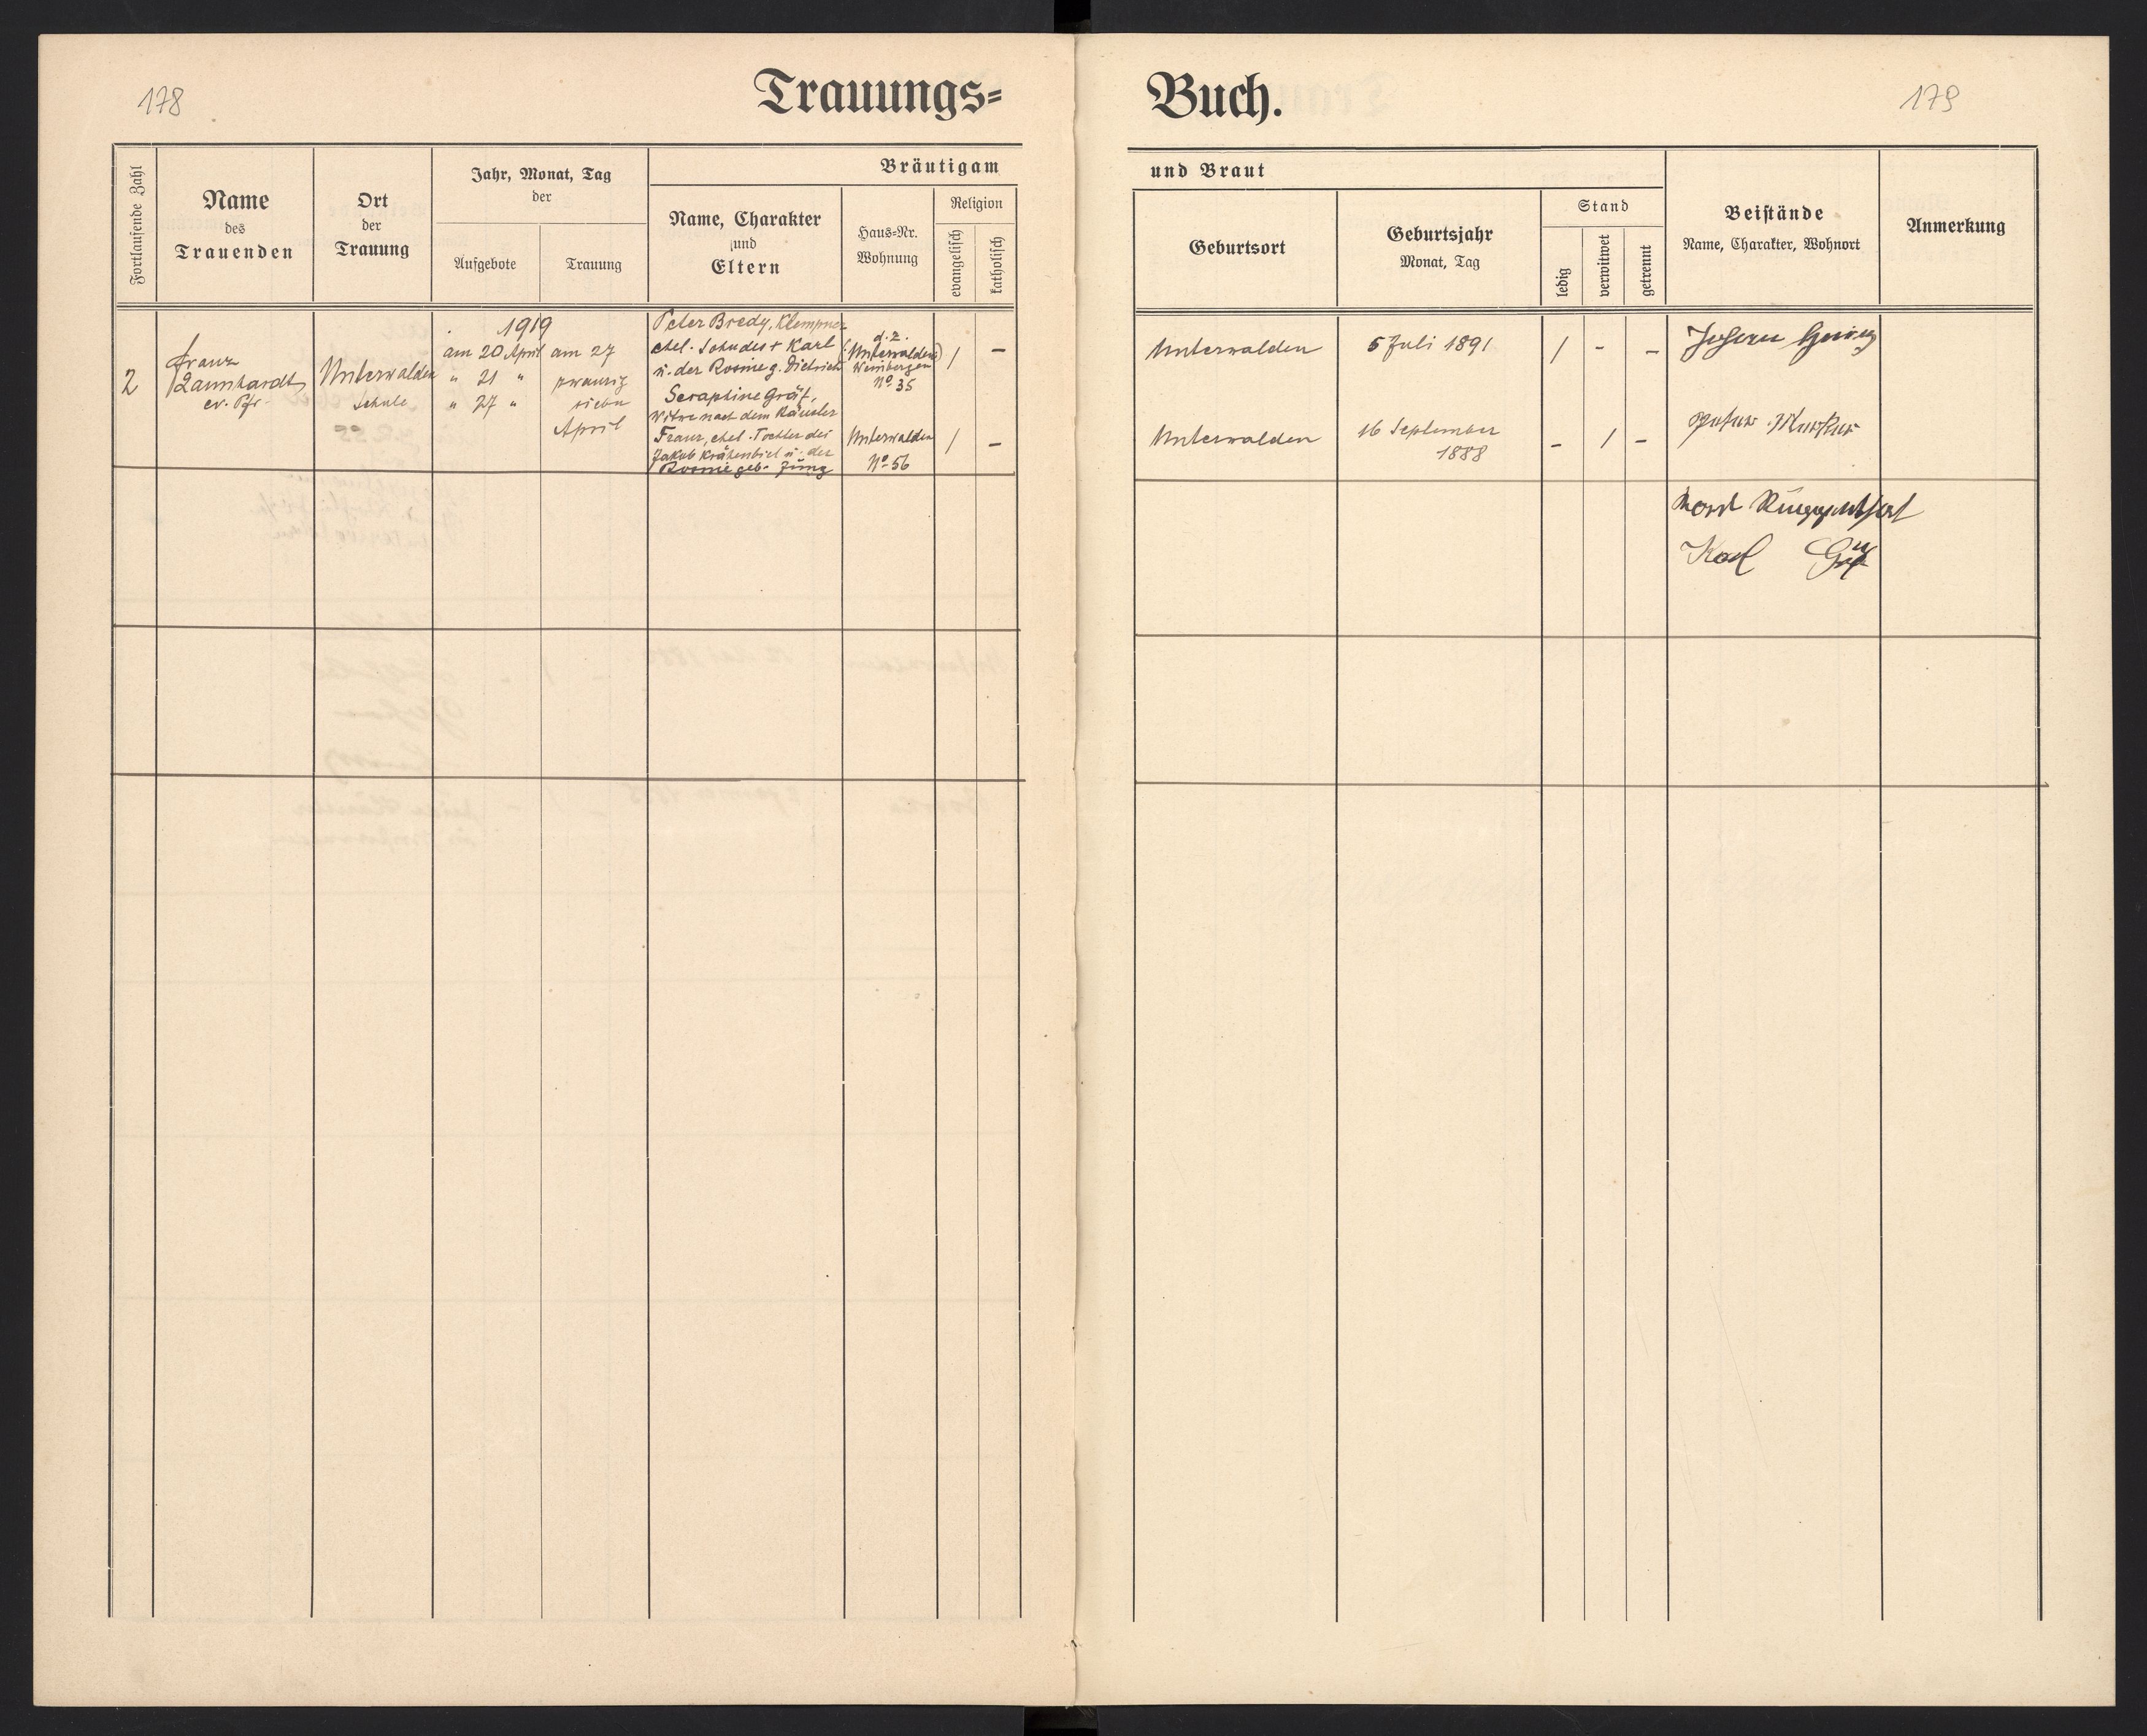 178
Trauungs=
Buch.
179
Fortlaufende Zahl
Name
des
Trauenden
Ort
der
Trauung
Jahr, Monat, Tag
der
Aufgebote
Trauung
Bräutigam
Name, Charakter
und
Eltern
Haus=Nr.
Wohnung
Religion
evangelisch
katholisch
und Braut
Geburtsort
Geburtsjahr
Monat, Tag
Stand
ledig
verwitwet
getrennt
Beistände
Name, Charakter, Wohnort
Anmerkung
2
Franz
Lannhardt
ev. Pfr.
Unterwalden
Schule
1919
am 20 April
" 21 "
" 27 "
am 27
zwanzig
sieben
April
Peter Bredy, Klempner
ehel. Sohn des + Karl
u. der Rosine g. Dietrich
d. z.
(Unterwalden)
Weinbergen
Nº 35
/
–
Unterwalden
5 Juli 1891
/
-
–
Seraphine Gräf,
Witwe nach dem Häusler
Franz, ehel. Tochter des
Jakob Krähenbiel u. der
Rosine geb. Jung
Unterwalden
Nº 56
/
–
Unterwalden
16 September
1888
–
/
–
Karl